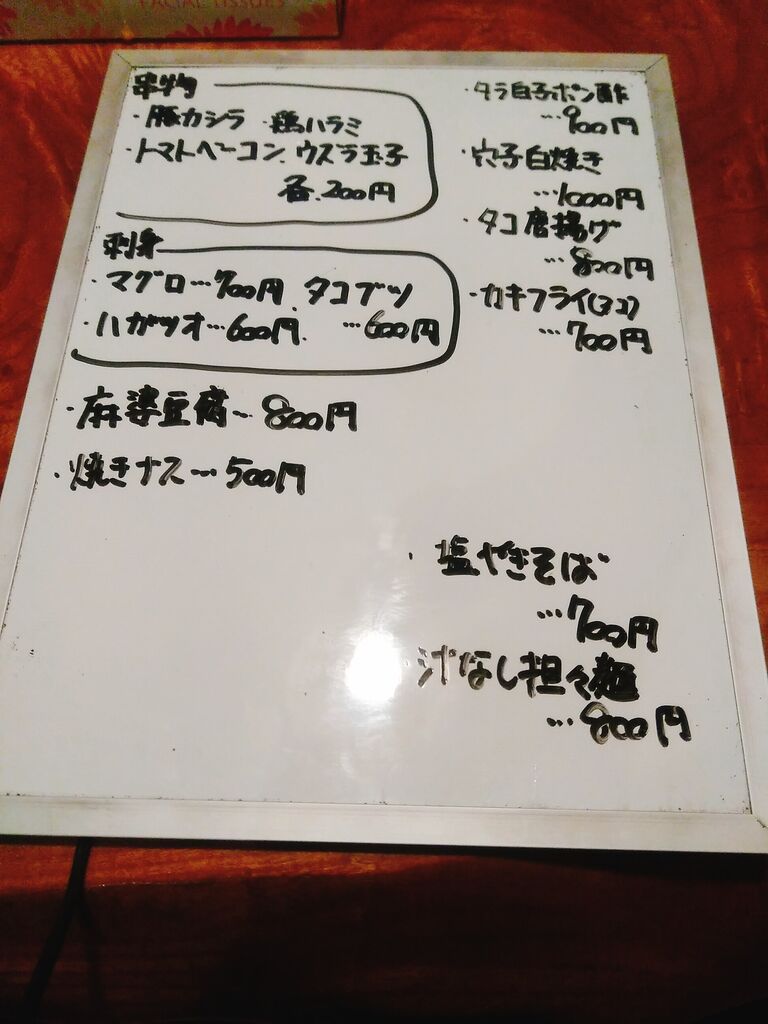 FACIAL TISSUES
串物
・豚カシラ ・鶏ハラミ
・トマトベーコン、ウズラ玉子
各、200円
刺身
・マグロ…700円、タコブツ
・ハガツオ…600円、…600円
・麻婆豆腐…800円
・焼きナス…500円
・タラ白子ポン酢
…900円
・穴子白焼き
…1000円
・タコ唐揚げ
…800円
・カキフライ(3コ)
…700円
・塩やきそば
…700円
・汁なし担々麺
…800円